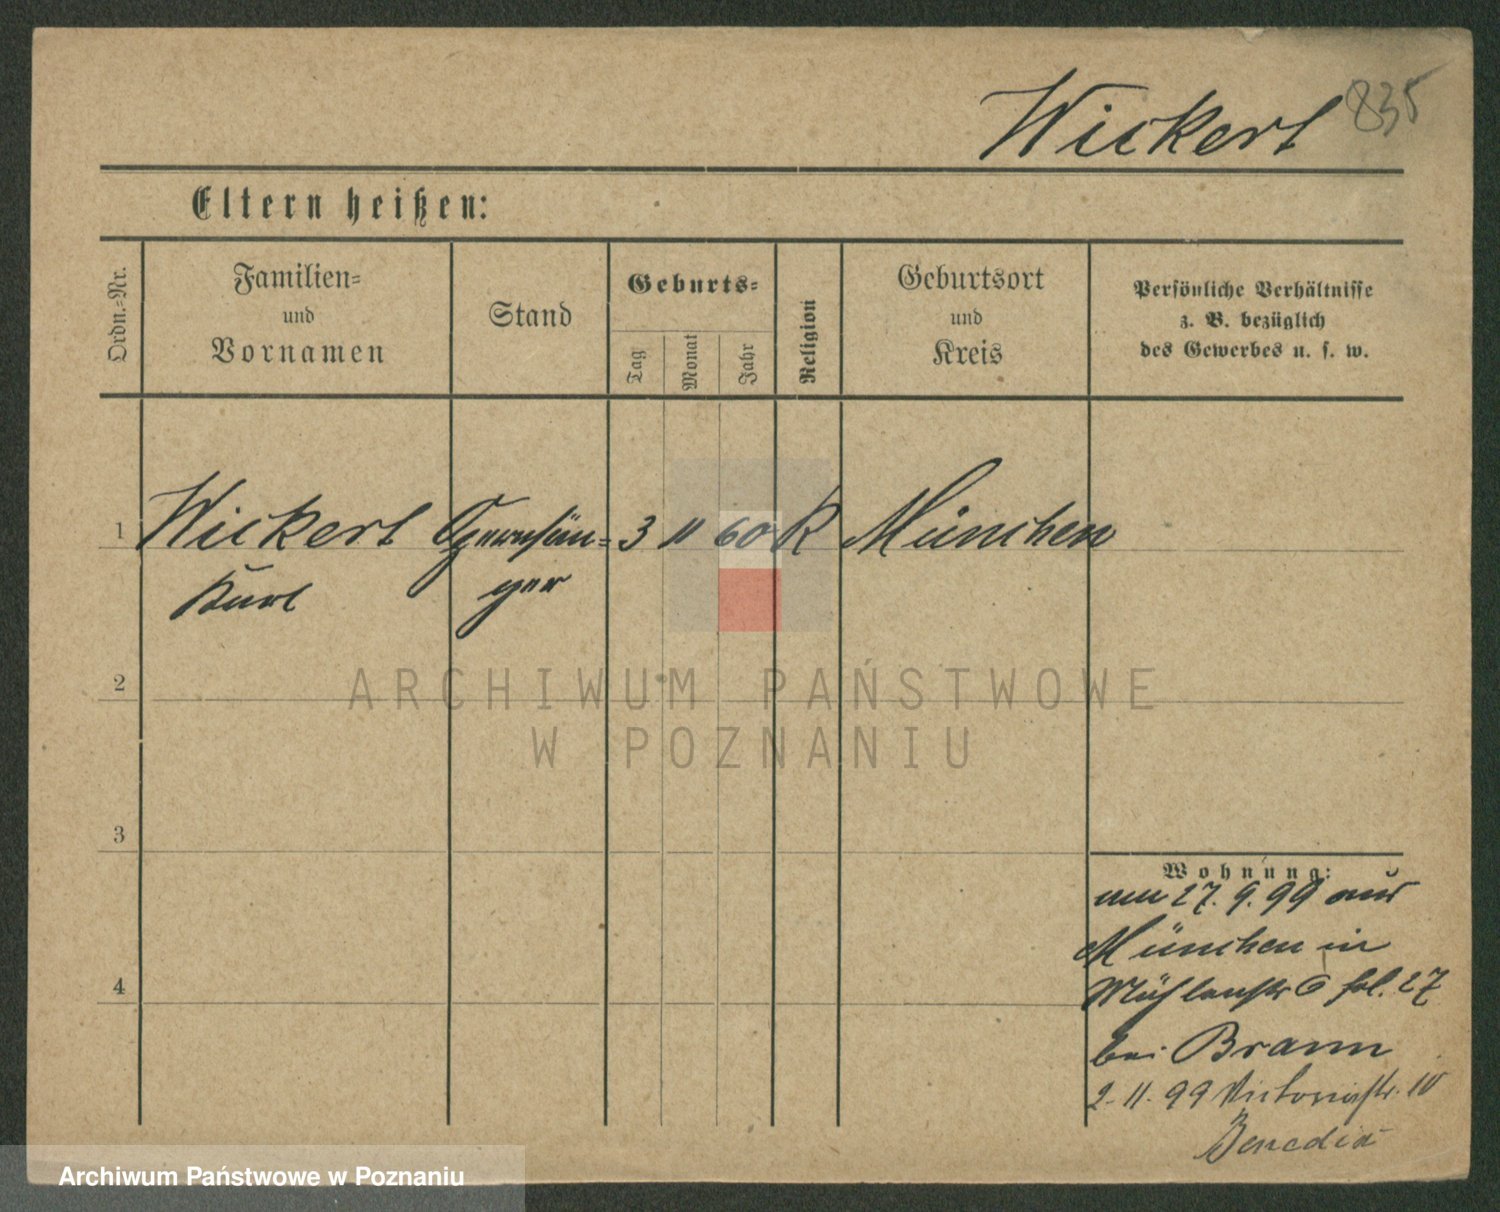 Wickert 835
Eltern heißen:
Ordn.=Nr.
Familien=
und
Vornamen
Stand
Geburts=
Tag
Monat
Jahr
Religion
Geburtsort
und
Kreis
Persönliche Verhältnisse
z. B. bezüglich
des Gewerbes u. s. w.
1 Wickert Opernsän= 3 11 60 K München
Karl ger
2
ARCHIWUM PAŃSTWOWE
W POZNANIU
3
Wohnung:
am 27. 9. 99 aus
München in
4
Mühlenstr 6 fol. 27
bei Braun
2. 11. 99 Victoriastr. 10
Archiwum Państwowe w Poznaniu